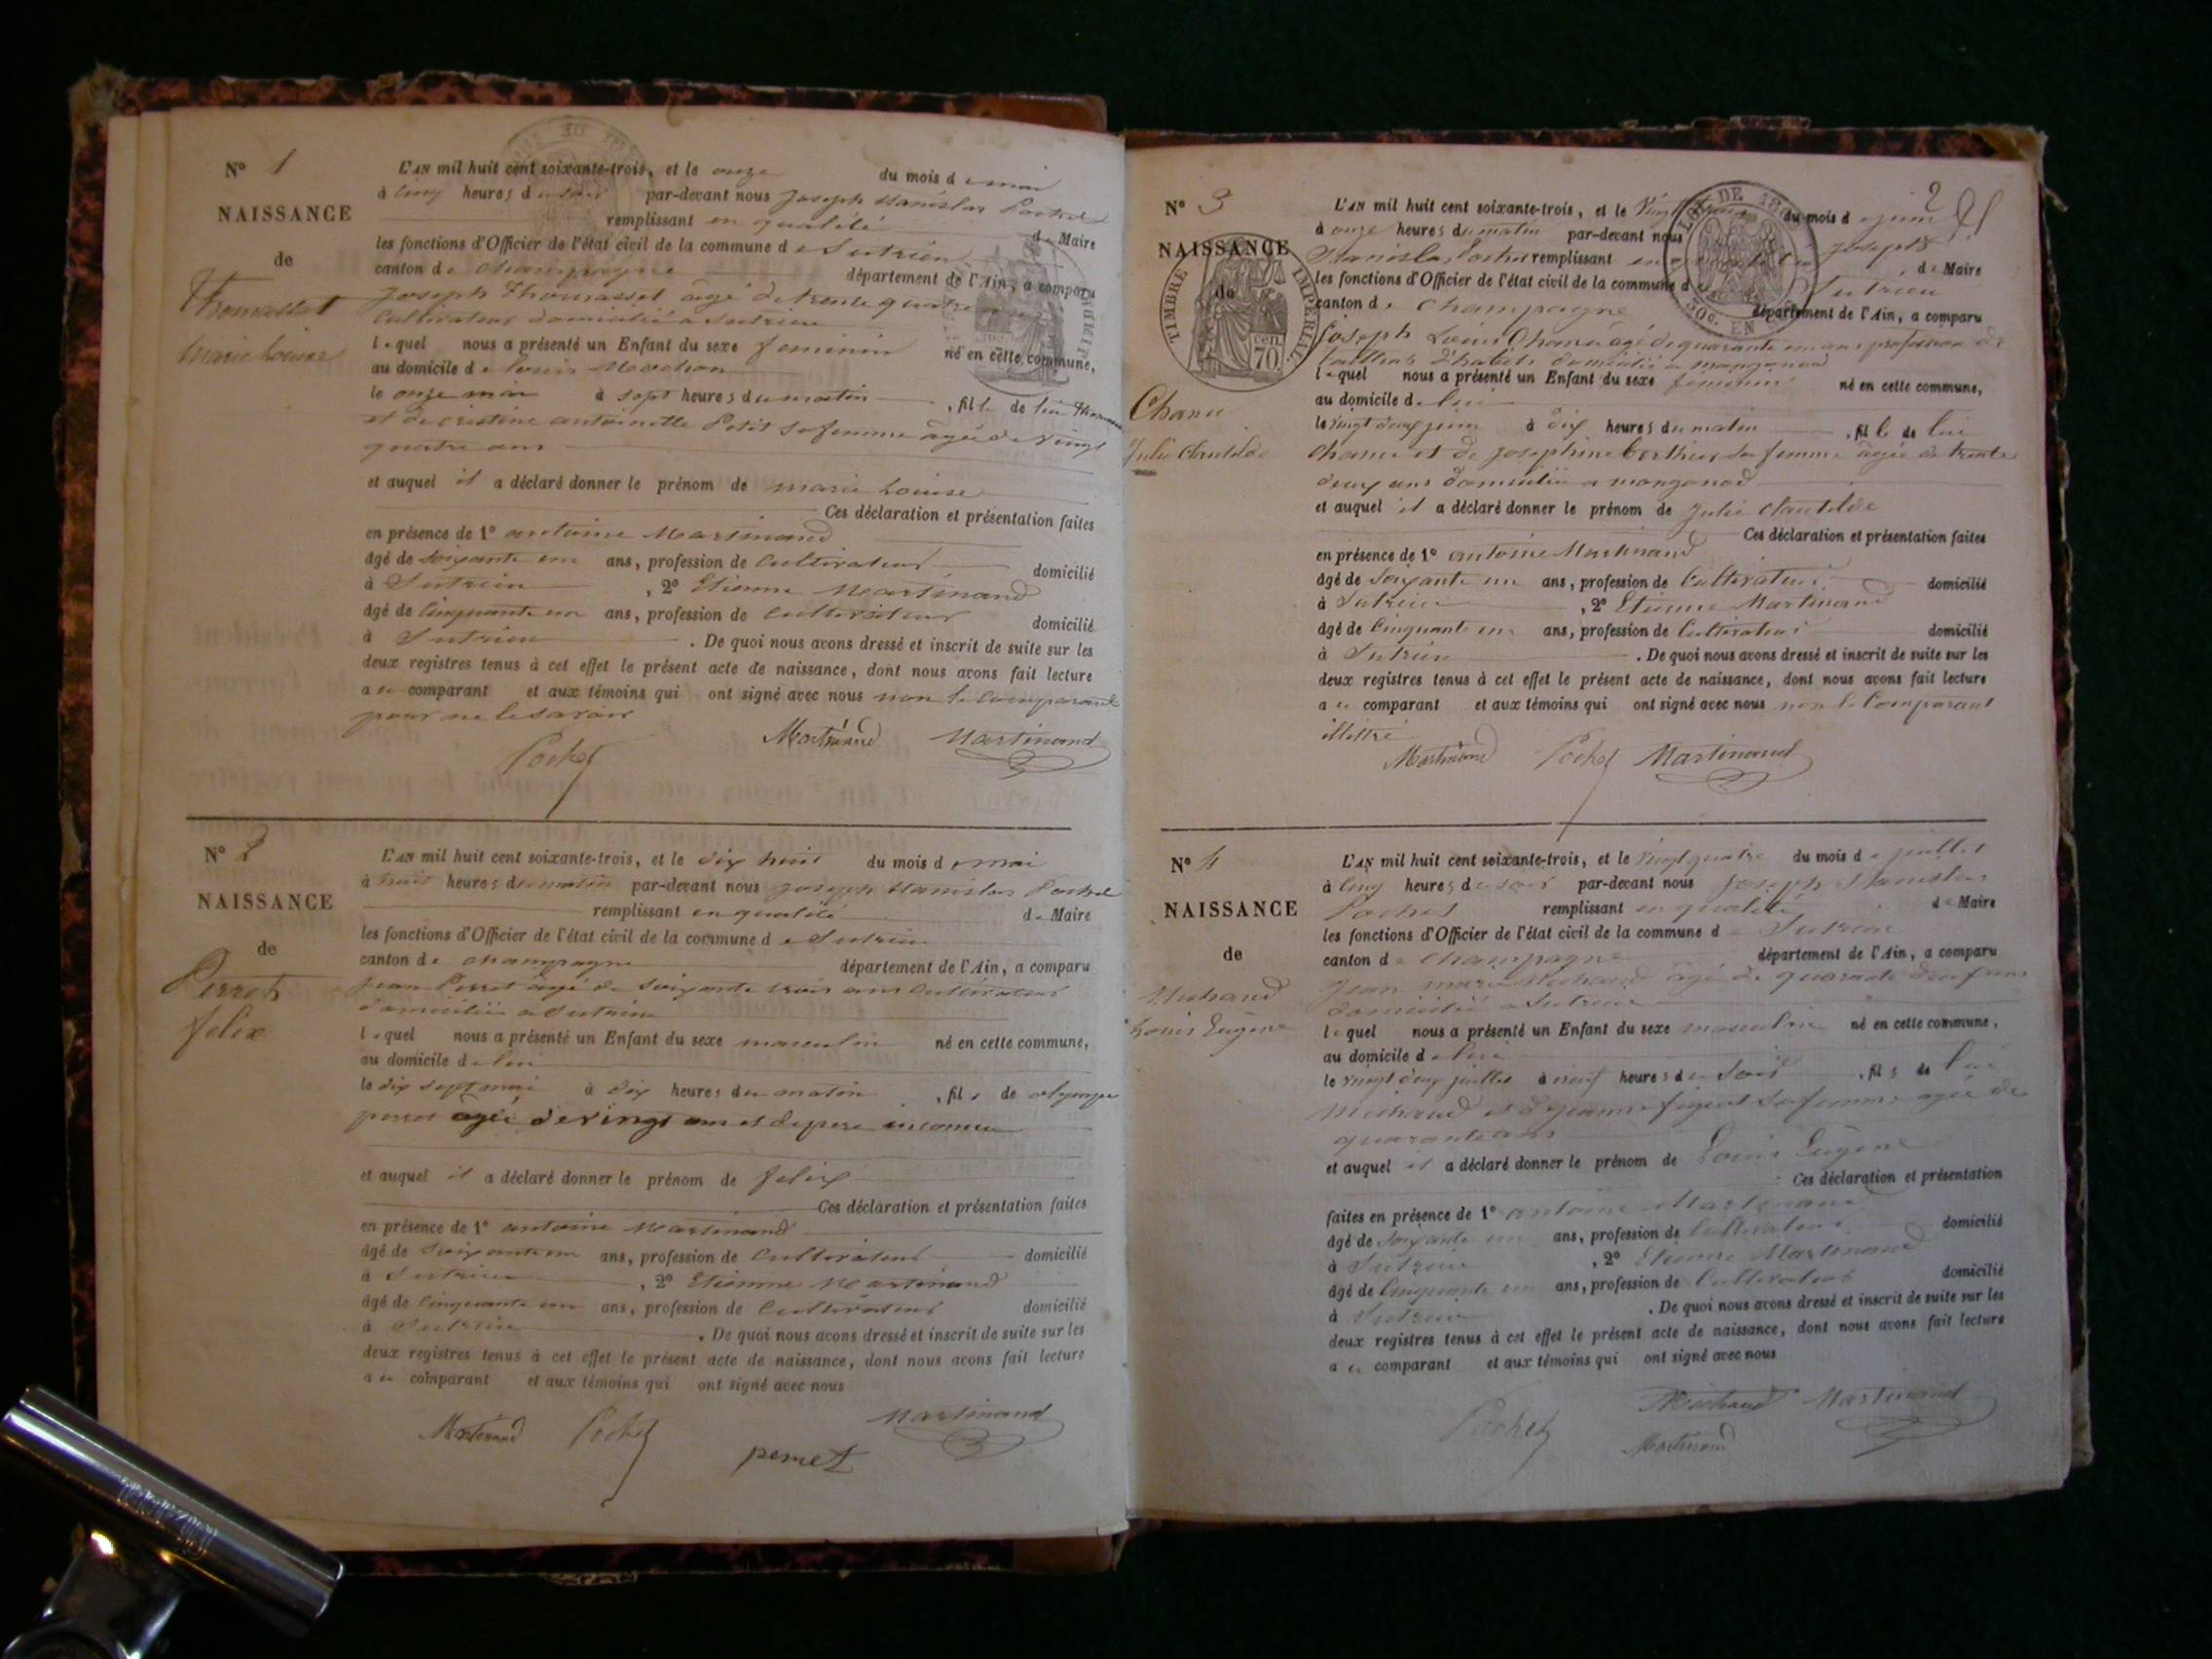 N° 1
NAISSANCE
de
Thomasset
Marie Louise
L'AN mil huit cent soixante-trois, et le onze du mois de mai
à cinq heures du soir par-devant nous Joseph Stanislas Pochet
remplissant en qualité de Maire
les fonctions d'Officier de l'état civil de la commune de Sutrieu
canton de Champagne département de l'Ain, a comparu
Joseph Thomasset âgé de trente quatre
Cultivateur domicilié a Sutrieu
lequel nous a présenté un Enfant du sexe feminin né en cette commune,
au domicile de Louis
le onze mai à sept heures du matin, fille de lui
et de cristine antoinette Petit sa femme âgée de vingt
quatre ans
et auquel il a déclaré donner le prénom de marie Louise
Ces déclaration et présentation faites
en présence de 1° antoine Martinand
âgé de soixante un ans, profession de Cultivateur domicilié
à Sutrieu, 2° Etienne Martinand
âgé de Cinquante un ans, profession de Cultivateur domicilié
à Sutrieu. De quoi nous avons dressé et inscrit de suite sur les
deux registres tenus à cet effet le présent acte de naissance, dont nous avons fait lecture
au comparant et aux témoins qui ont signé avec nous non le Comparant
pour ne le savoir
Pochet Martinand Martinand
N° 2
NAISSANCE
de
Perret
felix
L'AN mil huit cent soixante-trois, et le dix huit du mois de mai
à huit heures du matin par-devant nous Joseph Stanislas Pochet
remplissant en qualité de Maire
les fonctions d'Officier de l'état civil de la commune de Sutrieu
canton de Champagne département de l'Ain, a comparu
Jean Perret âgé de soixante trois ans Cultivateur
domicilié a Sutrieu
lequel nous a présenté un Enfant du sexe masculin né en cette commune,
au domicile de lui
le dix sept mai à dix heures du matin, fils de olympe
perret agée de vingt ans et de pere inconnu
et auquel il a déclaré donner le prénom de felix
Ces déclaration et présentation faites
en présence de 1° antoine Martinand
âgé de soixante un ans, profession de Cultivateur domicilié
à Sutrieu, 2° Etienne Martinand
âgé de Cinquante un ans, profession de Cultivateur domicilié
à Sutrieu. De quoi nous avons dressé et inscrit de suite sur les
deux registres tenus à cet effet le présent acte de naissance, dont nous avons fait lecture
au comparant et aux témoins qui ont signé avec nous
Martinand Pochet perret Martinand
2
N° 3
NAISSANCE
de
TIMBRE IMPERIAL
CEN 70.
LOI DE 18
50c. EN
Chanu
Julie Clautilde
L'AN mil huit cent soixante-trois, et le Vingt du mois de juin
à onze heures du matin par-devant nous Joseph
Stanislas Pochet remplissant en de Maire
les fonctions d'Officier de l'état civil de la commune de Sutrieu
canton de Champagne département de l'Ain, a comparu
Joseph Louis Chanu âgé de quarante un ans profession de
tailleur d'habits domicilié a
lequel nous a présenté un Enfant du sexe féminin né en cette commune,
au domicile de lui
le vingt deux juin à dix heures du matin, fille de lui
Chanu et de josephine berthier sa femme âgée de trente
deux ans domiciliée a
et auquel il a déclaré donner le prénom de Julie Clautilde
Ces déclaration et présentation faites
en présence de 1° antoine Martinand
âgé de Soixante un ans, profession de Cultivateur domicilié
à Sutrieu, 2° Etienne Martinand
âgé de Cinquante un ans, profession de Cultivateur domicilié
à Sutrieu. De quoi nous avons dressé et inscrit de suite sur les
deux registres tenus à cet effet le présent acte de naissance, dont nous avons fait lecture
au comparant et aux témoins qui ont signé avec nous non le Comparant
illettré
Martinand Pochet Martinand
N° 4
NAISSANCE
de
Michaud
Louis Eugène
L'AN mil huit cent soixante-trois, et le vingt quatre du mois de juillet
à cinq heures du soir par-devant nous Joseph Stanislas
Pochet remplissant en qualité de Maire
les fonctions d'Officier de l'état civil de la commune de Sutrieu
canton de Champagne département de l'Ain, a comparu
Jean marie Michaud agé de quarante deux ans
domicilié a Sutrieu
lequel nous a présenté un Enfant du sexe masculin né en cette commune,
au domicile de lui
le vingt deux juillet à neuf heures du soir, fils de lui
Michaud et de jeanne sa femme agée de
quarante ans
et auquel il a déclaré donner le prénom de Louis Eugène
Ces déclaration et présentation
faites en présence de 1° antoine Martinand
âgé de Soixante un ans, profession de Cultivateur domicilié
à Sutrieu, 2° Etienne Martinand
âgé de Cinquante un ans, profession de Cultivateur domicilié
à Sutrieu. De quoi nous avons dressé et inscrit de suite sur les
deux registres tenus à cet effet le présent acte de naissance, dont nous avons fait lecture
au comparant et aux témoins qui ont signé avec nous
Pochet Michaud Martinand
Martinand